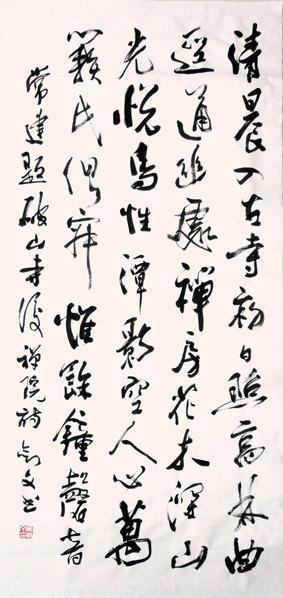 清晨入古寺初日照高林曲
逕通幽處禪房花木深山
光悅鳥性潭影空人心萬
籟此俱寂惟餘鐘磬音
常建題破山寺後禪院詩 劍文书